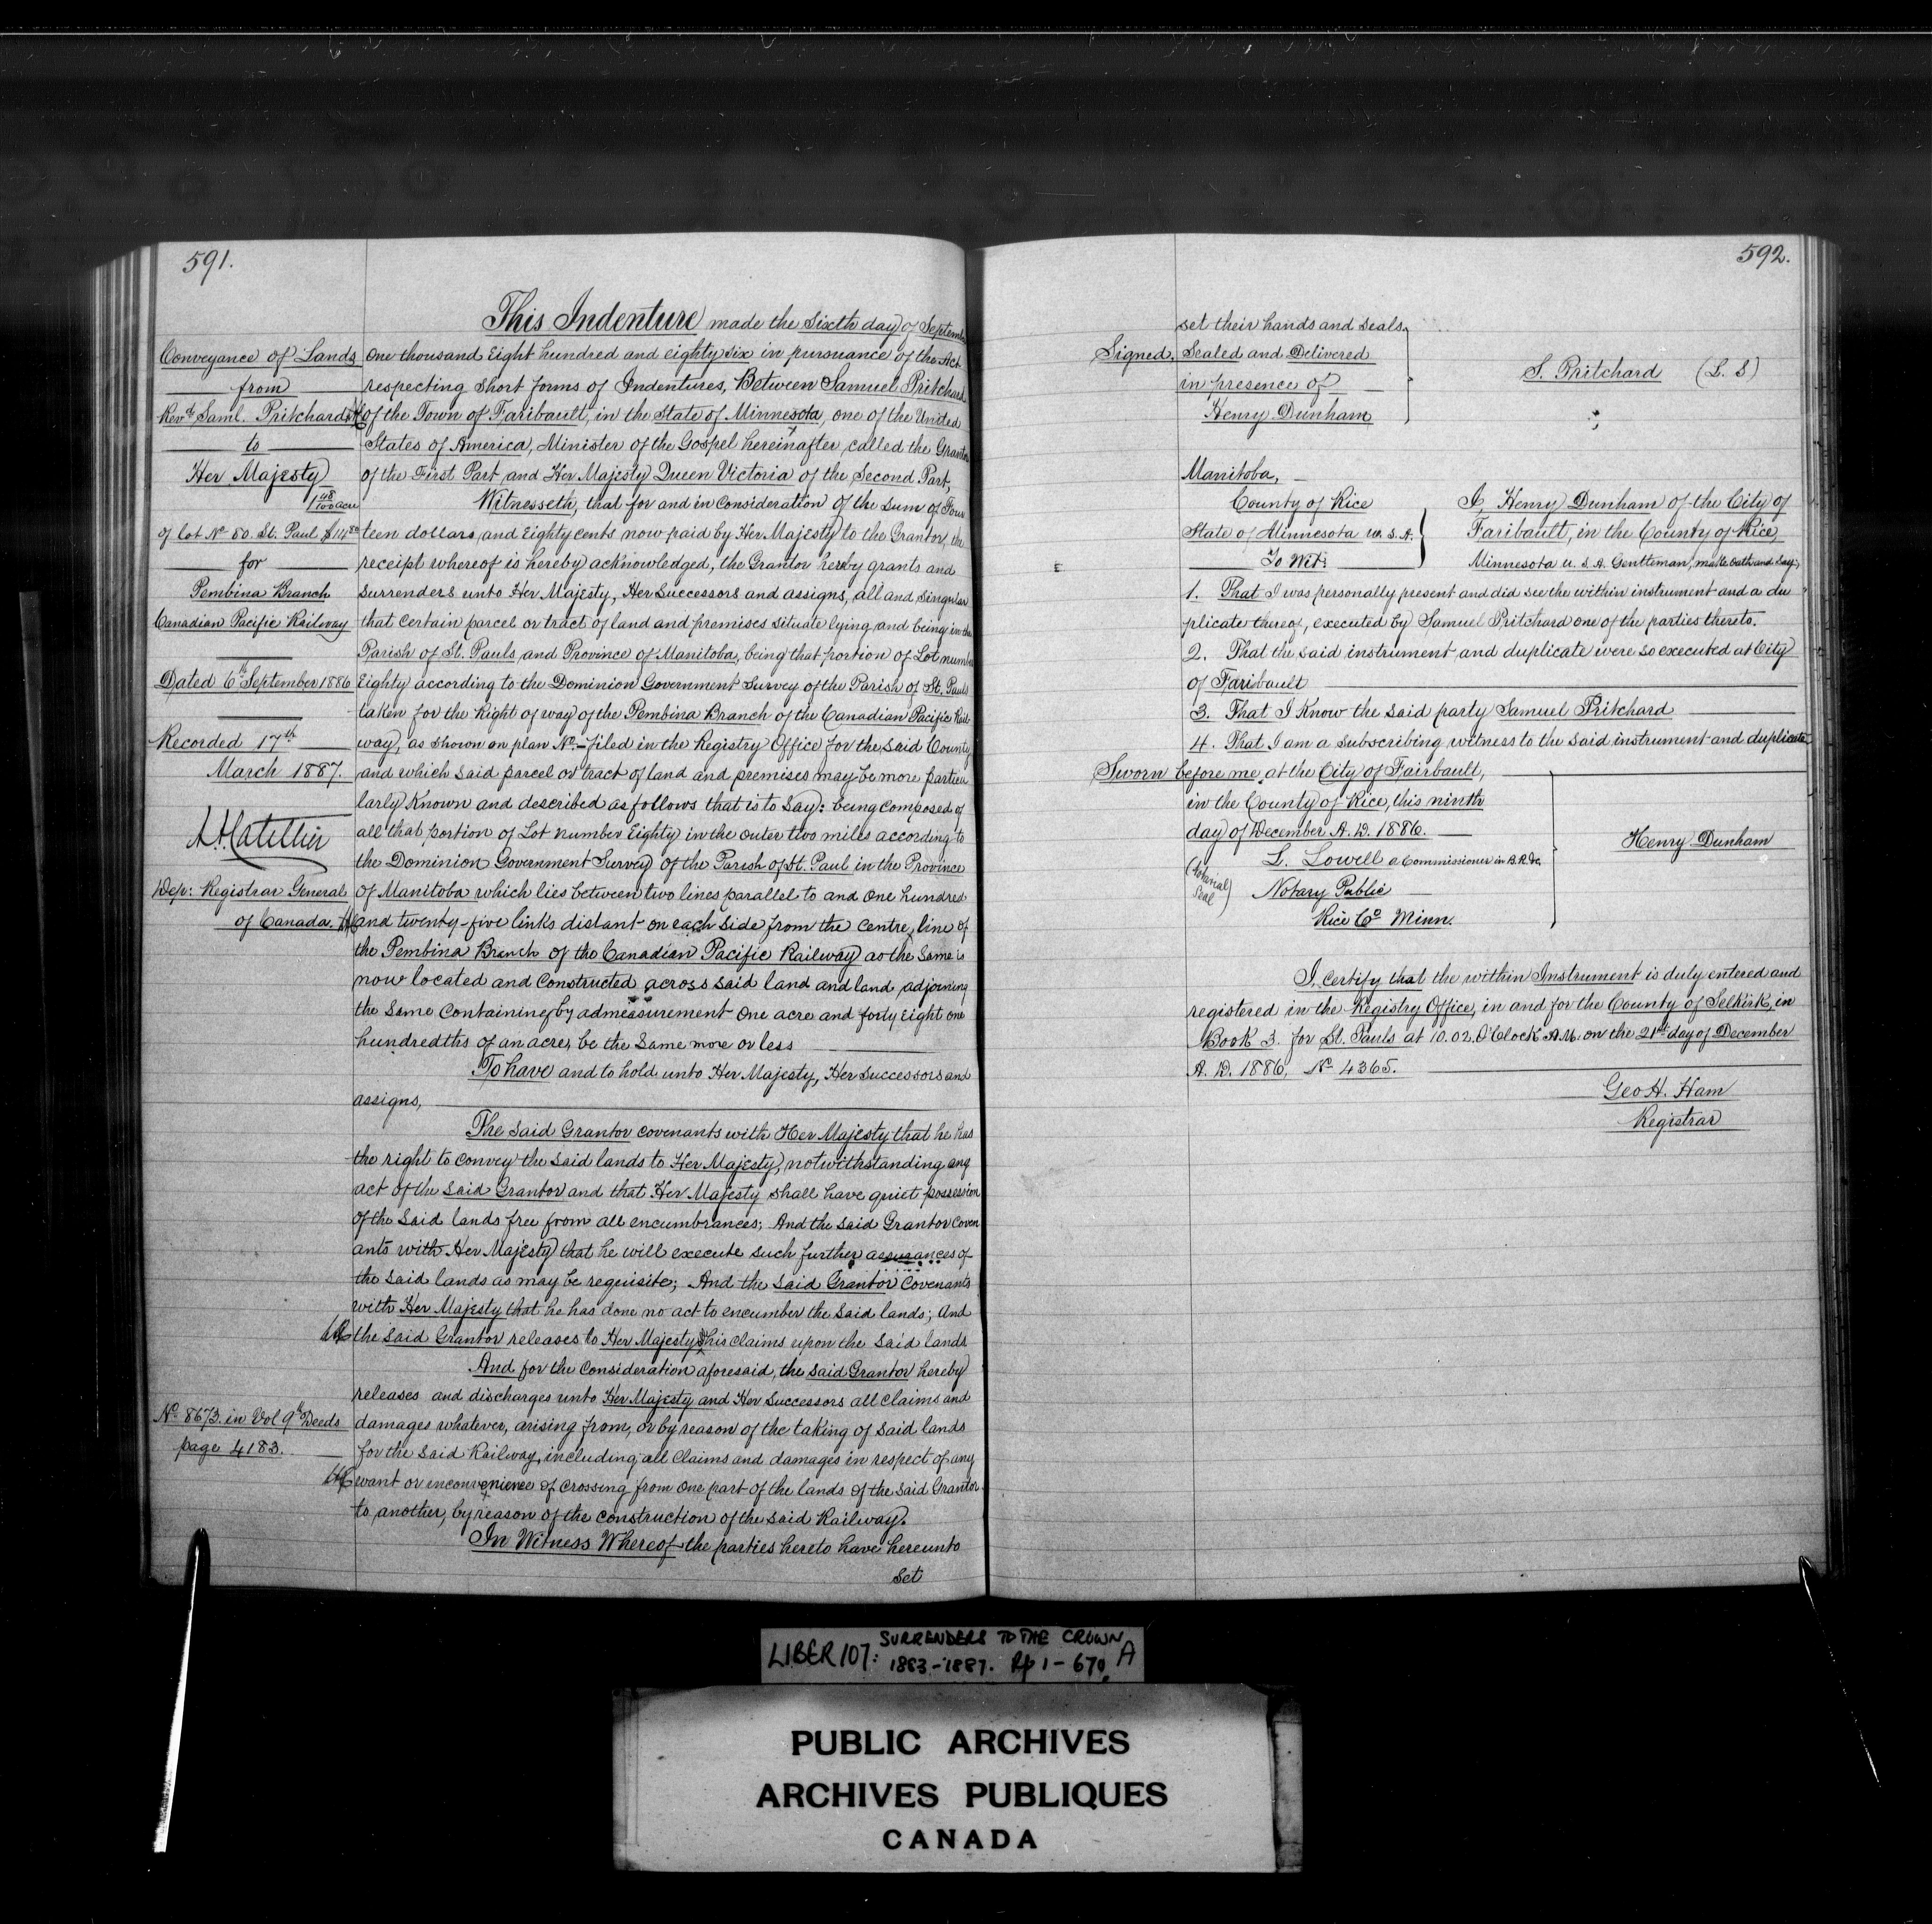 591.
Conveyance of Lands
from
Revd. Saml. Pritchard
to
Her Majesty
1 48/100 acre
of lot No 80. St. Paul $14 80
for
Pembina Branch
Canadian Pacific Railway
Dated 6th September 1886
Recorded 17th
March 1887.
Dep: Registrar General
of Canada.
No 8673. in Vol 9th Deeds
page 4183.
This Indenture made the Sixth day of Septembe
One thousand Eight hundred and eighty six in pursuance of the Act
respecting Short forms of Indentures, Between Samuel Pritchard
of the Town of Faribault, in the State of Minnesota, one of the United
States of America, Minister of the Gospel hereinafter called the Grantor
of the First Part, and Her Majesty Queen Victoria of the Second Part,
Witnesseth, that for and in Consideration of the sum of Four
teen dollars, and Eighty cents now paid by Her Majesty to the Grantor, the
receipt whereof is hereby acknowledged, the Grantor hereby grants and
Surrenders unto Her Majesty, Her Successors and assigns, all and Singular
that certain parcel or tract of land and premises situate lying and being in the
Parish of St. Pauls and Province of Manitoba, being that portion of Lot number
Eighty according to the Dominion Government Survey of the Parish of St. Pauls
taken for the Right of way of the Pembina Branch of the Canadian Pacific Rail
way, as shown on plan No.— filed in the Registry Office for the said County
and which said parcel or tract of land and premises may be more particu
larly Known and described as follows that is to Say: being composed of
all that portion of Lot number Eighty in the outer two miles according to
the Dominion Government Survey of the Parish of St. Paul in the Province
of Manitoba which lies between two lines parallel to and One hundred
and twenty-five links distant on each side from the centre line of
the Pembina Branch of the Canadian Pacific Railway as the Same is
now located and Constructed across said land and land adjoining
the Same Containing by admeasurement One acre and forty Eight one
hundredths of an acre, be the Same more or less
To have and to hold unto Her Majesty, Her Successors and
assigns,
The said Grantor covenants with Her Majesty that he has
the right to convey the said lands to Her Majesty, notwithstanding any
act of the said Grantor and that Her Majesty shall have quiet possession
of the said lands free from all encumbrances; And the said Grantor Coven
ants with Her Majesty that he will execute such further assurances of
the said lands as may be requisite; And the said Grantor Covenants
with Her Majesty that he has done no act to encumber the said lands; And
the said Grantor releases to Her Majesty his Claims upon the said lands
And for the Consideration aforesaid, the said Grantor hereby
releases and discharges unto Her Majesty and Her Successors all Claims and
damages whatever, arising from, or by reason of the taking of said lands
for the said Railway, including all Claims and damages in respect of any
want or inconvenience of Crossing from One part of the lands of the said Grantor
to another, by reason of the construction of the said Railway.
In Witness Whereof the parties hereto have hereunto
Set
592.
set their hands and seals.
Signed, Sealed and Delivered
in presence of
Henry Dunham
S. Pritchard (L. S)
Manitoba,
County of Rice
State of Minnesota U. S. A.
To Wit:
I, Henry Dunham of the City of
Faribault, in the County of Rice,
Minnesota U. S. A. Gentleman, make Oath and Say;
1. That I was personally present and did see the within instrument and a du
plicate thereof, executed by Samuel Pritchard one of the parties thereto.
2. That the said instrument and duplicate were so executed at City
of Faribault
3. That I Know the said party Samuel Pritchard
4. That I am a Subscribing witness to the said instrument and duplicate
Sworn before me, at the City of Fairbault,
in the County of Rice, this ninth
day of December A. D. 1886.
L. Lowell a Commissioner in B. R. &c,
(Notarial
Seal)
Notary Public
Rice Co Minn.
Henry Dunham
I, certify that the within Instrument is duly entered and
registered in the Registry Office, in and for the County of Selkirk, in
Book 3. for St. Pauls at 10.02. O'Clock A.M. on the 21st day of December
A. D. 1886, No 4365.
Geo H. Ham
Registrar
LIBER 107: SURRENDERS TO THE CROWN,
1883-1887. Pp 1-670 A
PUBLIC ARCHIVES
ARCHIVES PUBLIQUES
CANADA